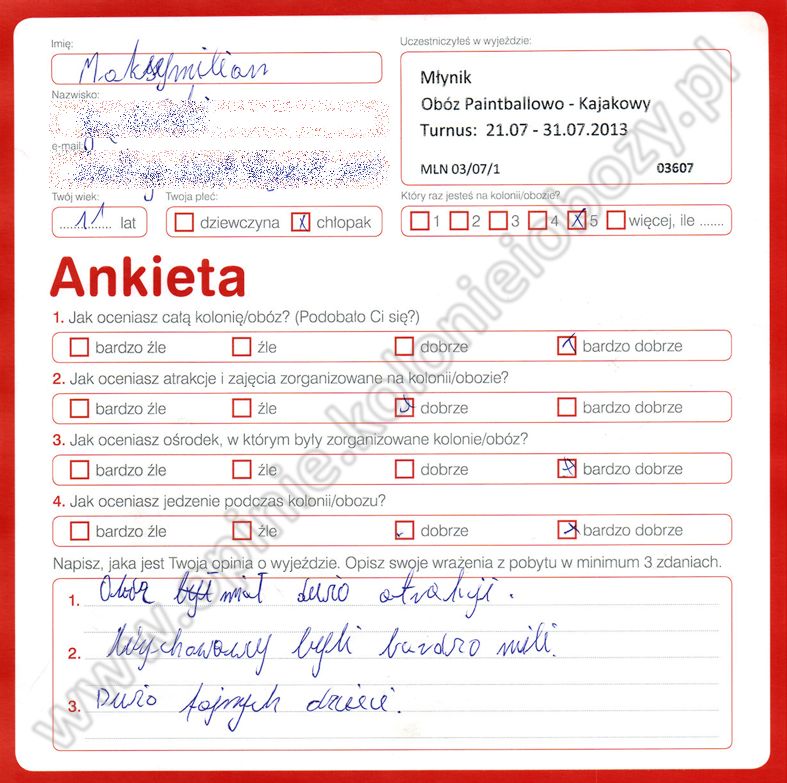 Imię:
Maksymilian
Nazwisko:
e-mail:
Twój wiek:
11 lat
Twoja płeć:
dziewczyna chłopak
Uczestniczyłeś w wyjeździe:
Młynik
Obóz Paintballowo - Kajakowy
Turnus: 21.07 - 31.07.2013
MLN 03/07/1 03607
Który raz jesteś na kolonii/obozie?
1 2 3 4 5 więcej, ile .......
Ankieta
1. Jak oceniasz całą kolonię/obóz? (Podobało Ci się?)
bardzo źle źle dobrze bardzo dobrze
2. Jak oceniasz atrakcje i zajęcia zorganizowane na kolonii/obozie?
bardzo źle źle dobrze bardzo dobrze
3. Jak oceniasz ośrodek, w którym były zorganizowane kolonie/obóz?
bardzo źle źle dobrze bardzo dobrze
4. Jak oceniasz jedzenie podczas kolonii/obozu?
bardzo źle źle dobrze bardzo dobrze
Napisz, jaka jest Twoja opinia o wyjeździe. Opisz swoje wrażenia z pobytu w minimum 3 zdaniach.
1. Obóz był miał dużo atrakcji.
2. Wychowawcy byli bardzo mili.
3. Dużo fajnych dzieci.
www.opinie.kolonieiobozy.pl